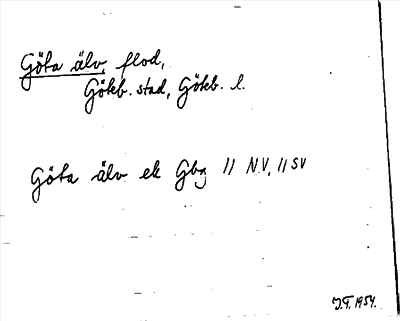 Göta älv, flod,
Göteb. stad, Göteb. l.
Göta älv ek Gbg // NV, // SV
J.F. 1954.